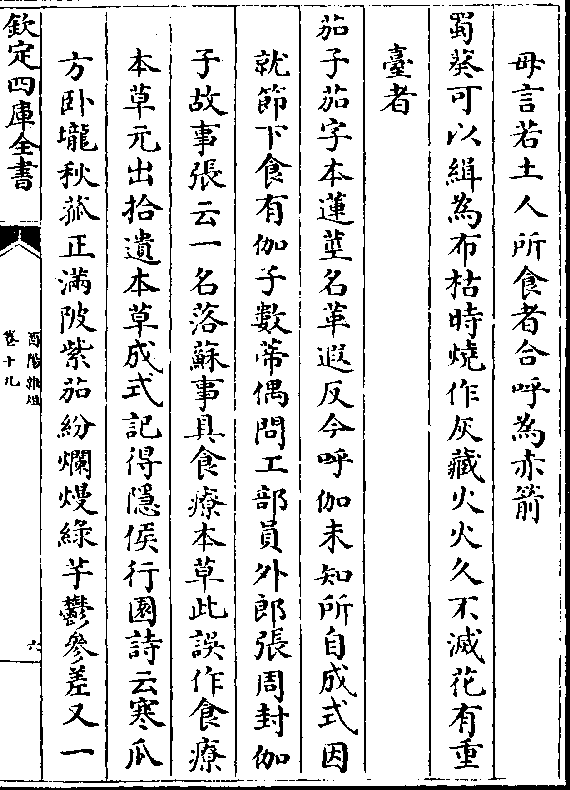 毋言若土人所食者合呼為赤箭
蜀葵可以緝為布枯時燒作灰藏火火久不滅花有重
臺者
茄子茄字本蓮莖名革遐反今呼伽未知所自成式因
就節下食有伽子數蒂偶問工部員外郎張周封伽
子故事張云一名落蘇事具食療本草此誤作食療
本草元出拾遺本草成式記得隱侯行園詩云寒瓜
方卧壠秋菰正滿陂紫茄紛爛熳綠芋鬱參差又一
欽定四庫全書
酉陽雜俎
卷十九
六